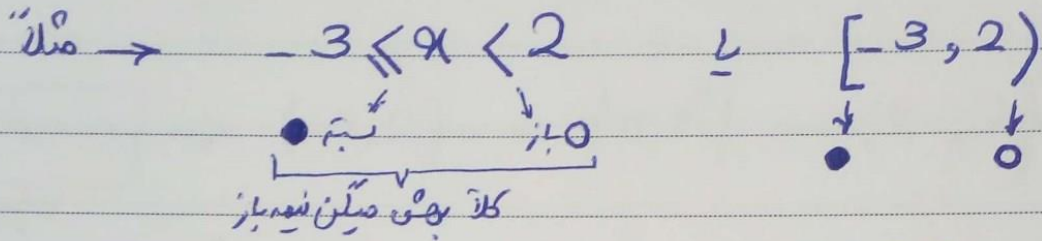 مثلاً → -3 ⩽ x < 2 یا [-3, 2)
● بسته باز ○ ● ○
کلاً بهش میگن نیمه باز